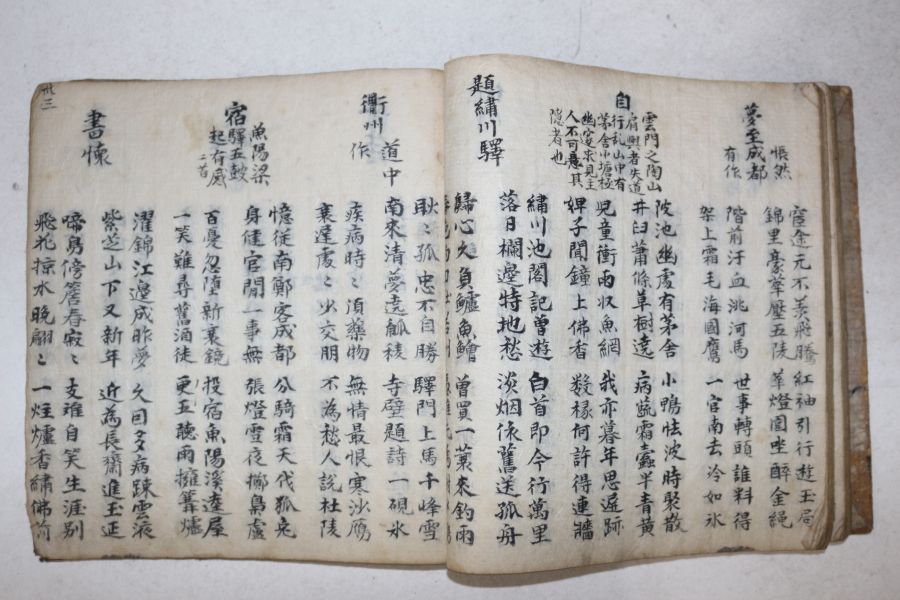 夢至成都
悵然
有作
宦途元不羡飛騰 紅袖引行遊玉局
錦里豪華壓五陵 華燈圍坐醉金繩
階前汗血洮河馬 世事轉頭誰料得
架上霜毛海國鷹 一官南去冷如氷
自
雲門之陶山
肩輿者失道
行乱山中有
茅舍小塘極
幽邃求見主
人不可意其
隱者也
陂池幽處有茅舍 小鴨怯波時聚散
井臼蕭條草樹遠 病蔬霜蠹半青黃
児童衝雨収魚網 我亦暮年思遁跡
婢子聞鐘上佛香 数椽何許得連牆
題繡川驛
繡川池閣記曾遊 白首即今行萬里
落日欄邊特地愁 淡烟依舊送孤舟
歸心久負鱸魚鱠 曾買一蓑來釣雨
衢州
道中
作
耿〻孤忠不自勝 驛門上馬千峰雪
南來清夢遶觚稜 寺壁題詩一硯氷
疾病時〻須藥物 無情最恨寒沙鴈
衰遲處〻少交朋 不為愁人說杜陵
宿
魚陽梁
驛五鼓
起有感
二首
憶從南鄭客成都 公騎霜天伐狐兔
身健官閒一事無 張燈雪夜擲梟盧
百憂忽墮新衰鏡 投宿魚陽溪遶屋
一笑難尋舊酒徒 更五聽雨擁篝爐
書懷
濯錦江邊成昨夢 久因多病踈雲液
紫芝山下又新年 近為長齋進玉延
啼鳥傍簷春寂〻 支離自笑生涯別
飛花掠水晚翩〻 一炷爐香繡佛前
卅三